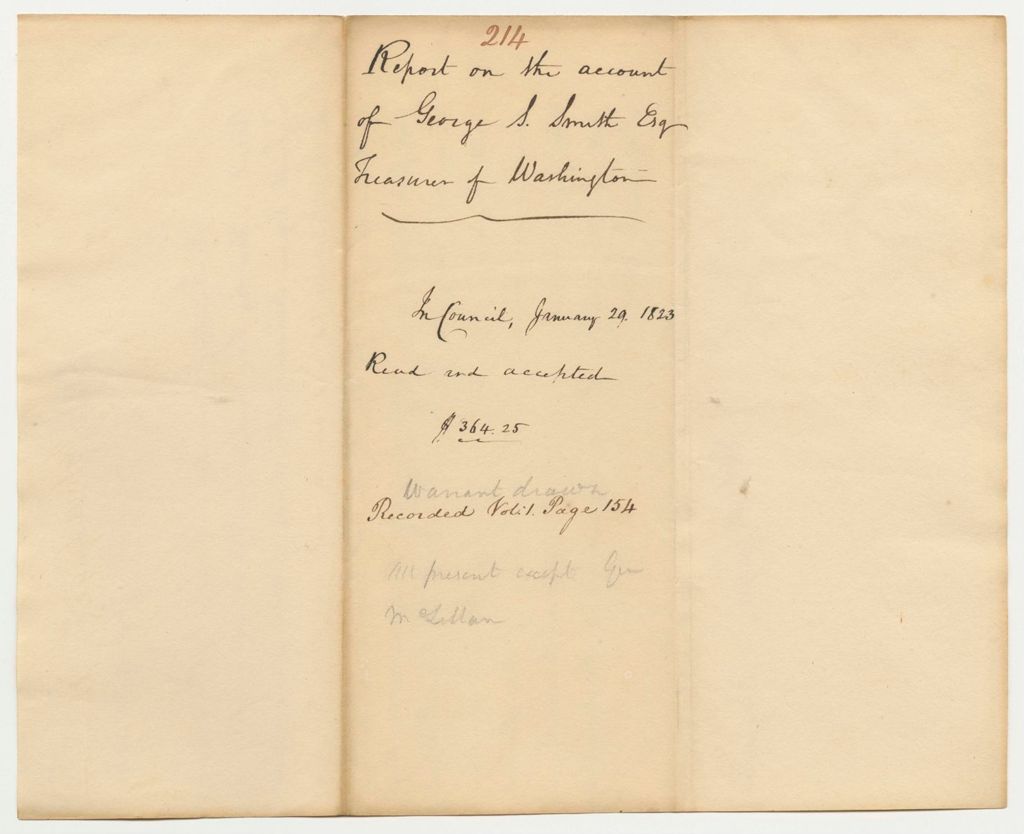 214
Report on the account
of George S. Smith Esq
Treasurer of Washington
In Council, January 29. 1823
Read and accepted
$ 364.25
Warrant drawn
Recorded Vol: 1. Page 154
All present except Gen
McLellan